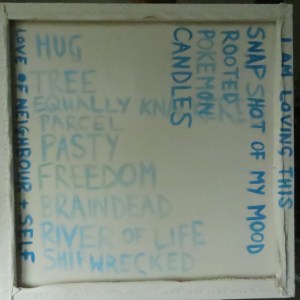 HUG
TREE
EQUALLY
PARCEL
PASTY
FREEDOM
BRAINDEAD
RIVER OF LIFE
SHIPWRECKED
LOVE OF NEIGHBOUR + SELF
CANDLES
POKEMON
ROOTED
SNAP SHOT OF MY MOOD
I AM LOVING THIS